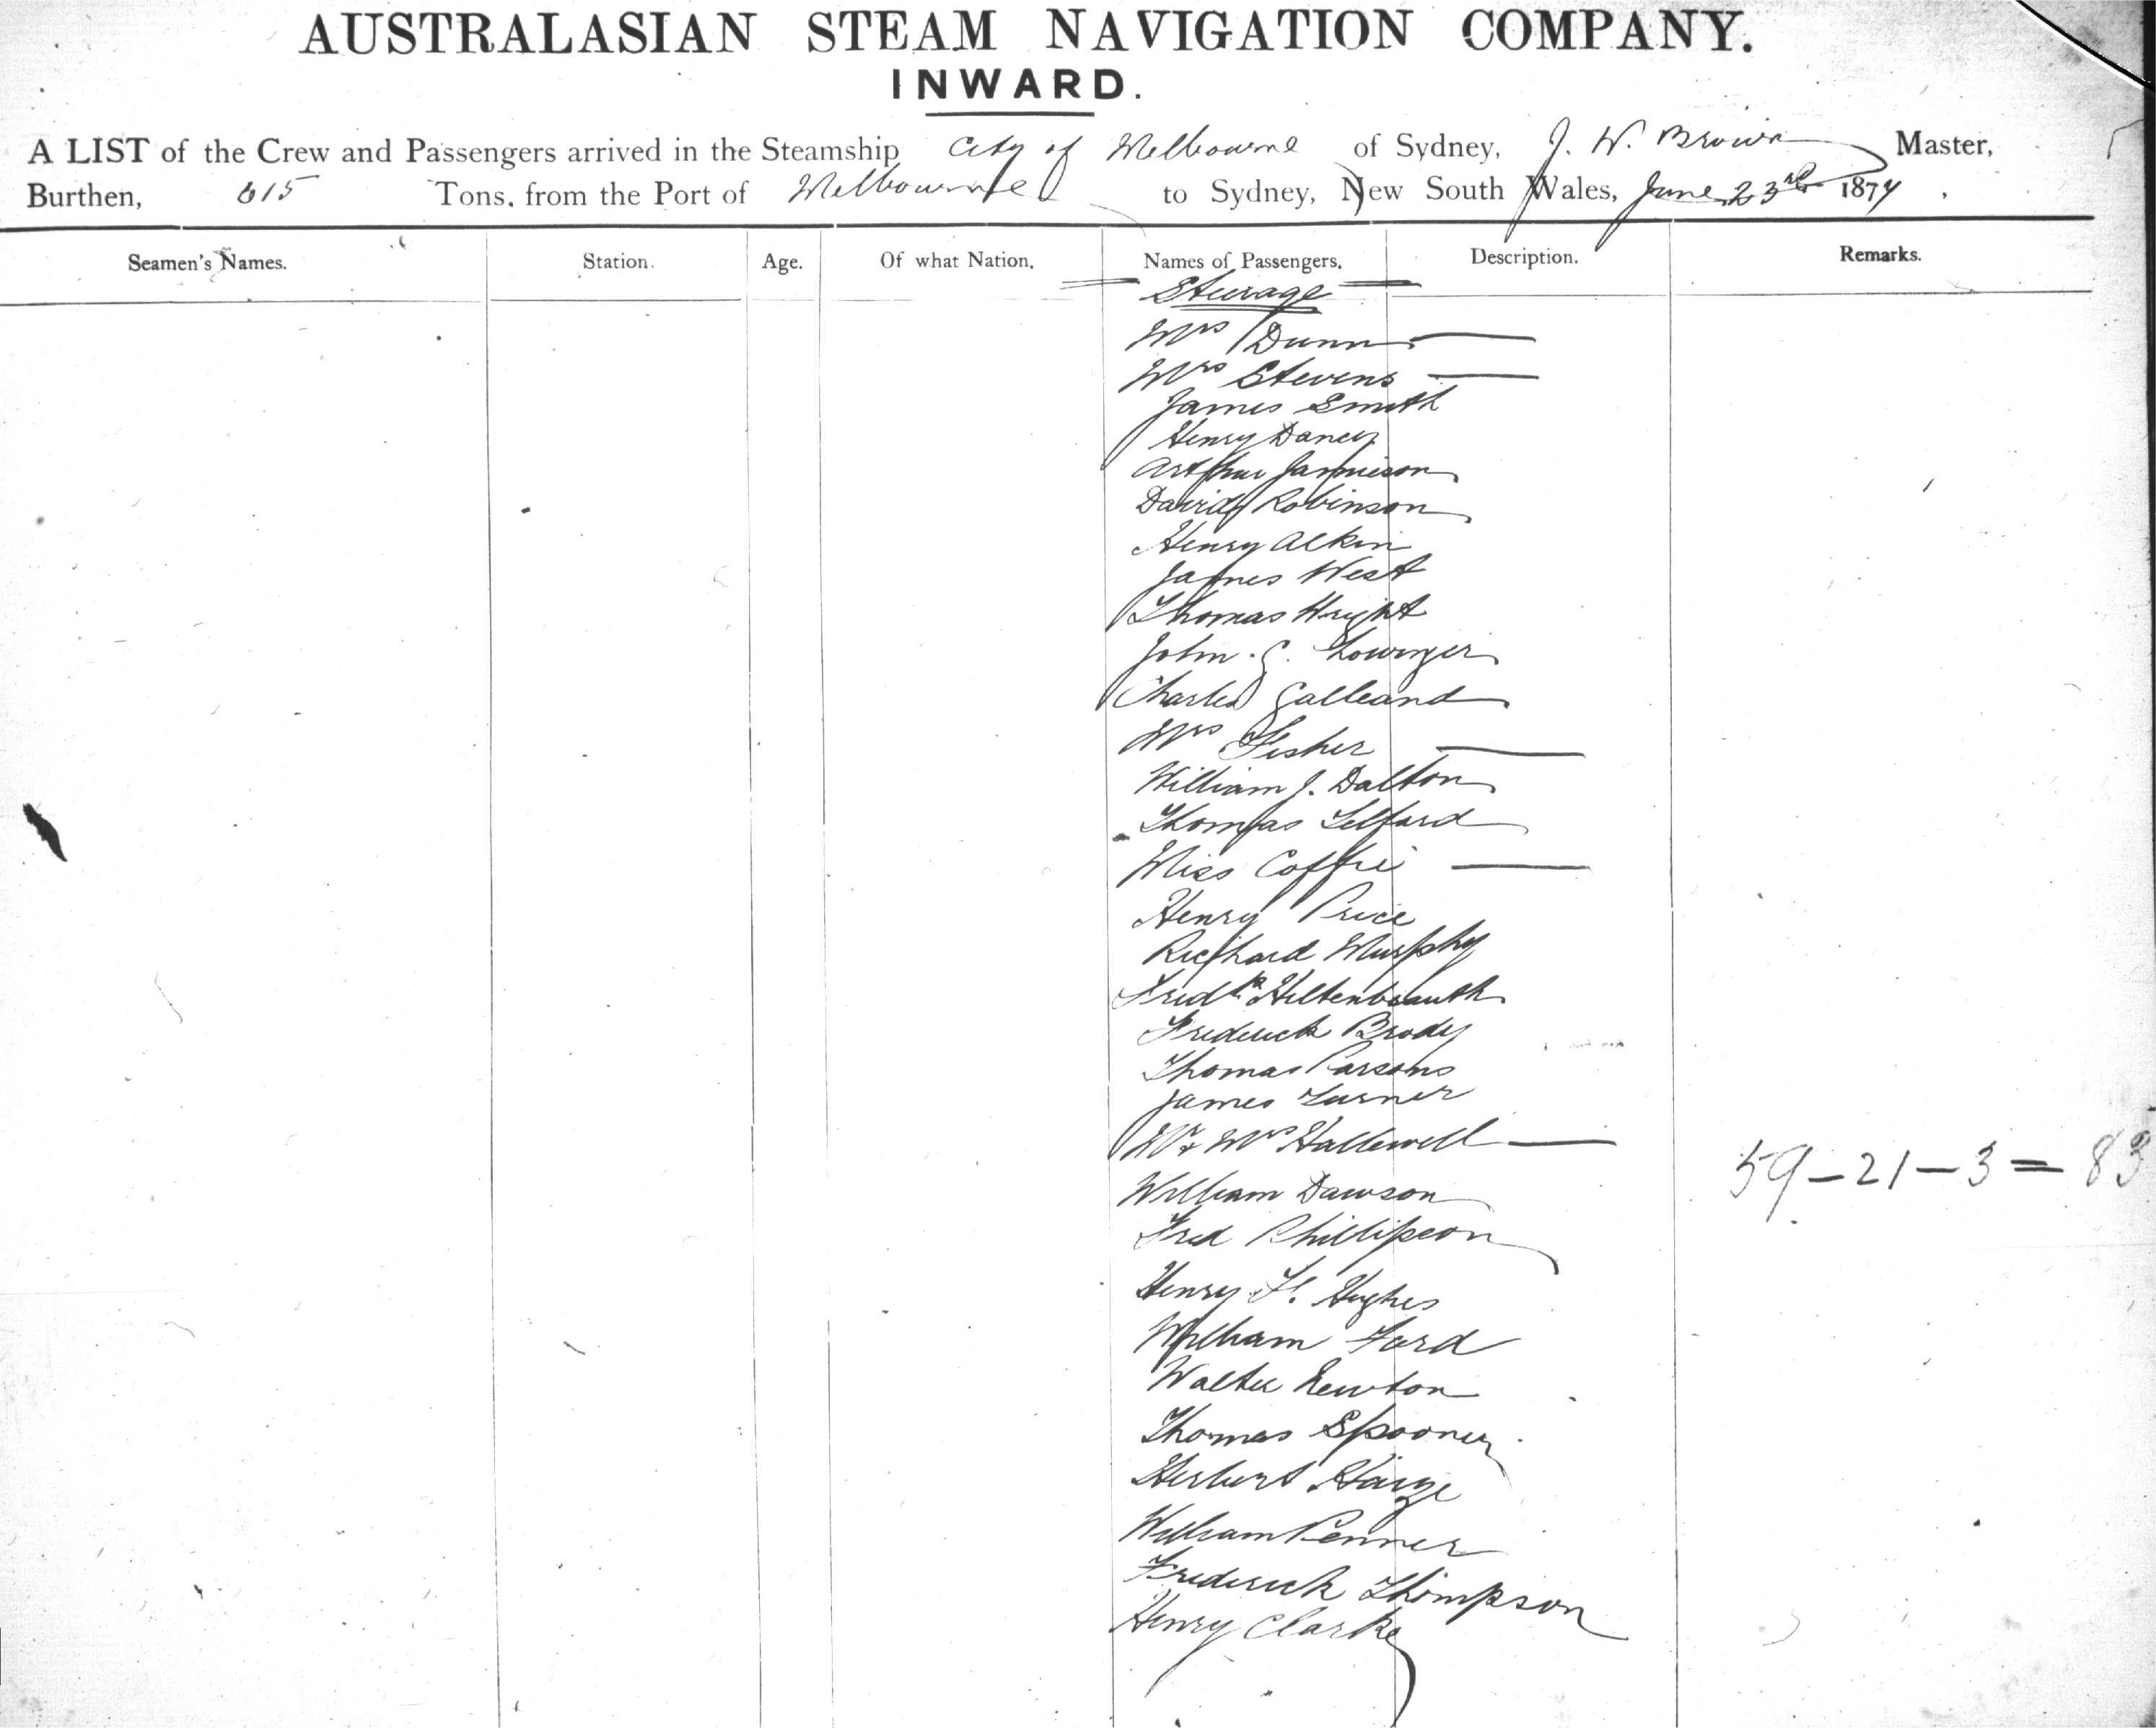 AUSTRALASIAN STEAM NAVIGATION COMPANY.
INWARD.
A LIST of the Crew and Passengers arrived in the Steamship City of Melbourne of Sydney, J. W. Brown Master,
Burthen, 615 Tons, from the Port of Melbourne to Sydney, New South Wales, June 23rd 1874.
Seamen's Names. Station. Age. Of what Nation. Names of Passengers. Description. Remarks.
Steerage
Mrs Dunn
Mrs Stevens
James Smith
Henry Dancy
Arthur Jamieson
David Robinson
Henry Alkin
James West
Thomas Wright
John G.
Charles Galleand
Mrs Fisher
William J. Dalton
Thomas Telford
Miss Coffie
Henry Price
Richard Murphy
Fredk
Frederick Brody
Thomas Parsons
James Turner
Mr & Mrs Hallewell
59 - 21 - 3 = 83
William Dawson
Fred Phillipson
Henry F. Hughes
William Ford
Walter Newton
Thomas Spooner
Herbert
William Penner
Frederick Thompson
Henry Clarke